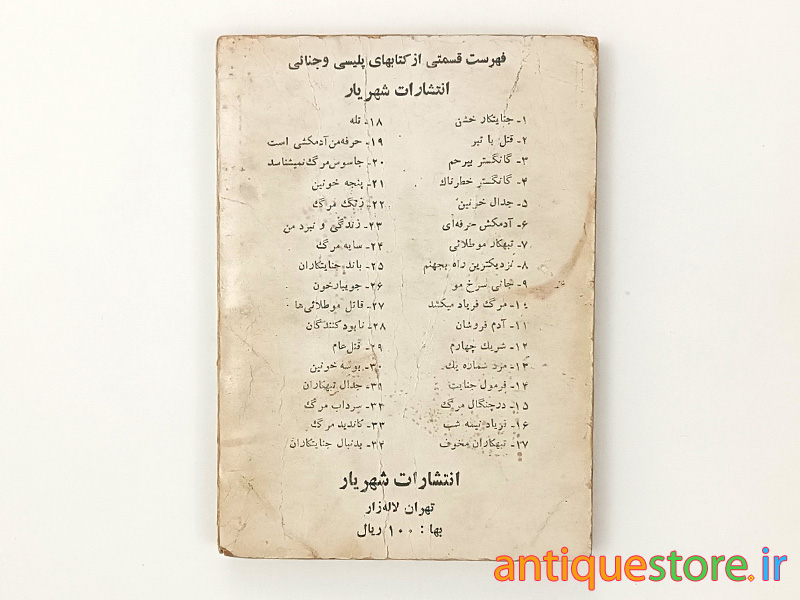 فهرست قسمتی از کتابهای پلیسی و جنائی
انتشارات شهریار
۱- جنایتکار خشن
۲- قتل با تیر
۳- گانگستر بیرحم
۴- گانگستر خطرناك
۵- جدال خونین
۶- آدمکش حرفه‌ای
۷- تبهکار موطلائی
۸- نزدیکترین راه بجهنم
۹- جانی سرخ مو
۱۰- مرگ فریاد میکشد
۱۱- آدم فروشان
۱۲- شریك چهارم
۱۳- مرد شماره یك
۱۴- فرمول جنایت
۱۵- درچنگال مرگ
۱۶- فریاد نیمه شب
۱۷- تبهکاران مخوف
۱۸- تله
۱۹- حرفه‌من آدمکشی است
۲۰- جاسوس مرگ نمیشناسد
۲۱- پنجه خونین
۲۲- زنگ مرگ
۲۳- زندگی و نبرد من
۲۴- سایه مرگ
۲۵- باند جنایتکاران
۲۶- جویبارخون
۲۷- قاتل موطلائی‌ها
۲۸- نابودکنندگان
۲۹- قتل‌عام
۳۰- بوسه خونین
۳۱- جدال تبهکاران
۳۲- سرداب مرگ
۳۳- کاندید مرگ
۳۴- بدنبال جنایتکاران
انتشارات شهریار
تهران لاله‌زار
بها : ۱۰۰ ریال
antiquestore.ir